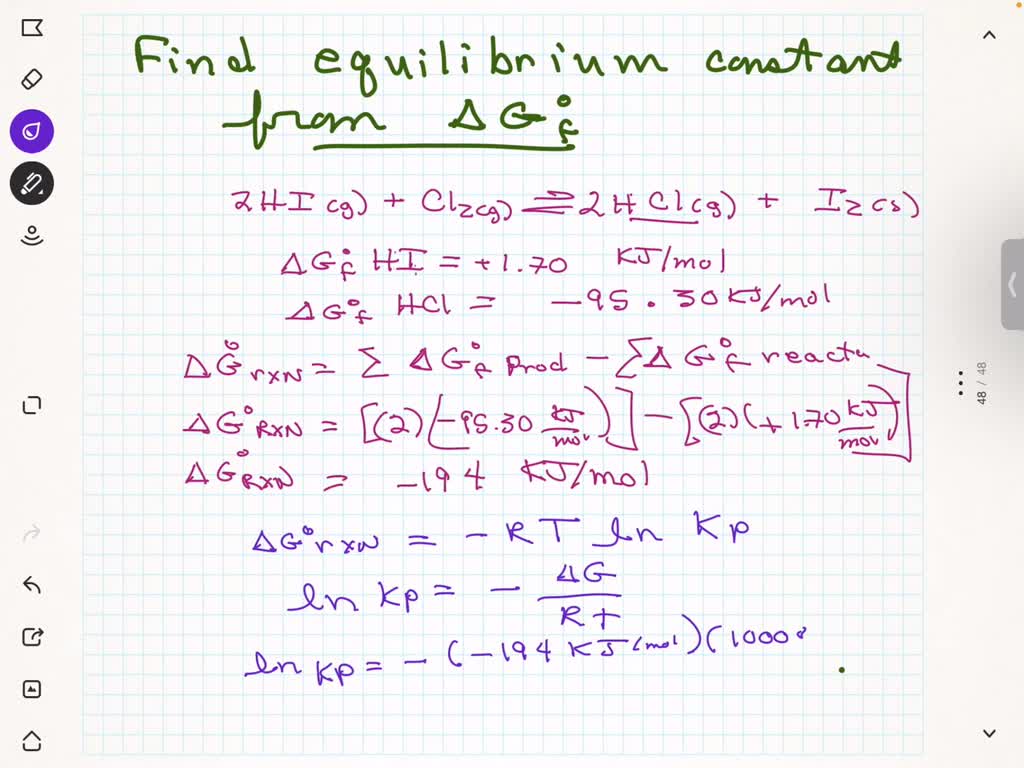 Find equilibrium constant
from ΔG°f
2HI(g) + Cl2(g) ⇌ 2HCl(g) + I2(s)
ΔG°f HI = +1.70 KJ/mol
ΔG°f HCl = -95.30 KJ/mol
ΔG°rxN = Σ ΔG°f Prod - Σ ΔG°f reacta
ΔG°RXN = [(2)(-95.30 KJ/mol)] - [(2)(+1.70 KJ/mol)]
ΔG°RXN = -194 KJ/mol
ΔG°rxN = -RT ln Kp
ln Kp = - ΔG/RT
ln Kp = - (-194 KJ/mol)(1000
48 / 48